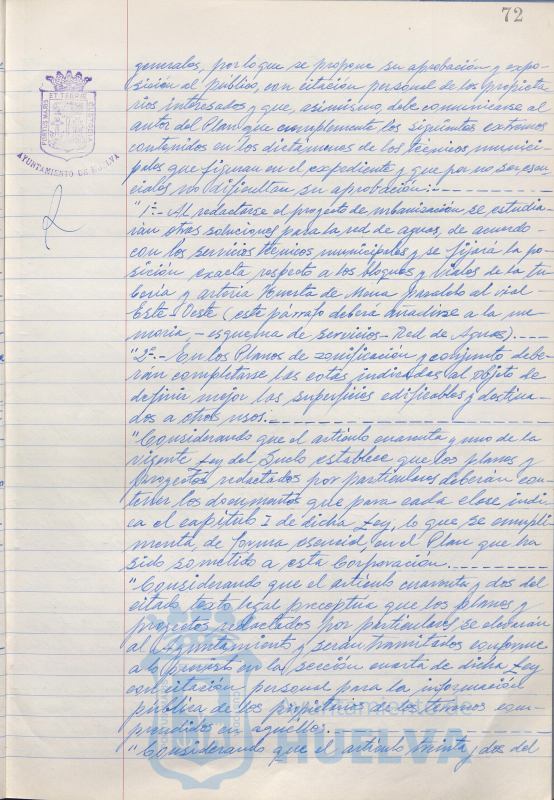 72
generales, por lo que se propone su aprobación y expo-
sición al público, con citación personal de los propieta-
rios interesados y que, asimismo debe comunicarse al
autor del Plan que complemente los siguientes extremos
contenidos en los dictámenes de los técnicos munici-
pales que figuran en el expediente y que por no ser esen-
ciales no dificultan su aprobación:
"1º.- Al redactarse el proyecto de urbanización se estudia-
rán otras soluciones para la red de aguas, de acuerdo
con los servicios técnicos municipales y se fijará la po-
sición exacta respecto a los bloques y viales de la tu-
bería y arteria Huerta de Mena paralela al vial
Este-Oeste (este párrafo deberá añadirse a la me-
moria, - esquema de servicios - Red de Aguas).
"2º.- En los Planos de zonificación y conjunto debe-
rán completarse las cotas indicadas al objeto de
definir mejor las superficies edificables y destina-
dos a otros usos.
"Considerando que el artículo cuarenta y uno de la
vigente Ley del Suelo establece que los planes y
proyectos redactados por particulares deberán con-
tener los documentos que para cada clase indi-
ca el capítulo I de dicha Ley, lo que se cumpli-
menta, de forma esencial, en el Plan que ha
sido sometido a esta Corporación.
"Considerando que el artículo cuarenta y dos del
citado texto legal preceptúa que los planes y
proyectos redactados por particulares se elevarán
al Ayuntamiento y serán tramitados conforme
a lo previsto en la sección cuarta de dicha Ley
con citación personal para la información
pública de los propietarios de los terrenos com-
prendidos en aquéllos.
"Considerando que el artículo treinta y dos del
AYUNTAMIENTO DE HUELVA
PORTUS MARIS ET TERRAE
HUELVA